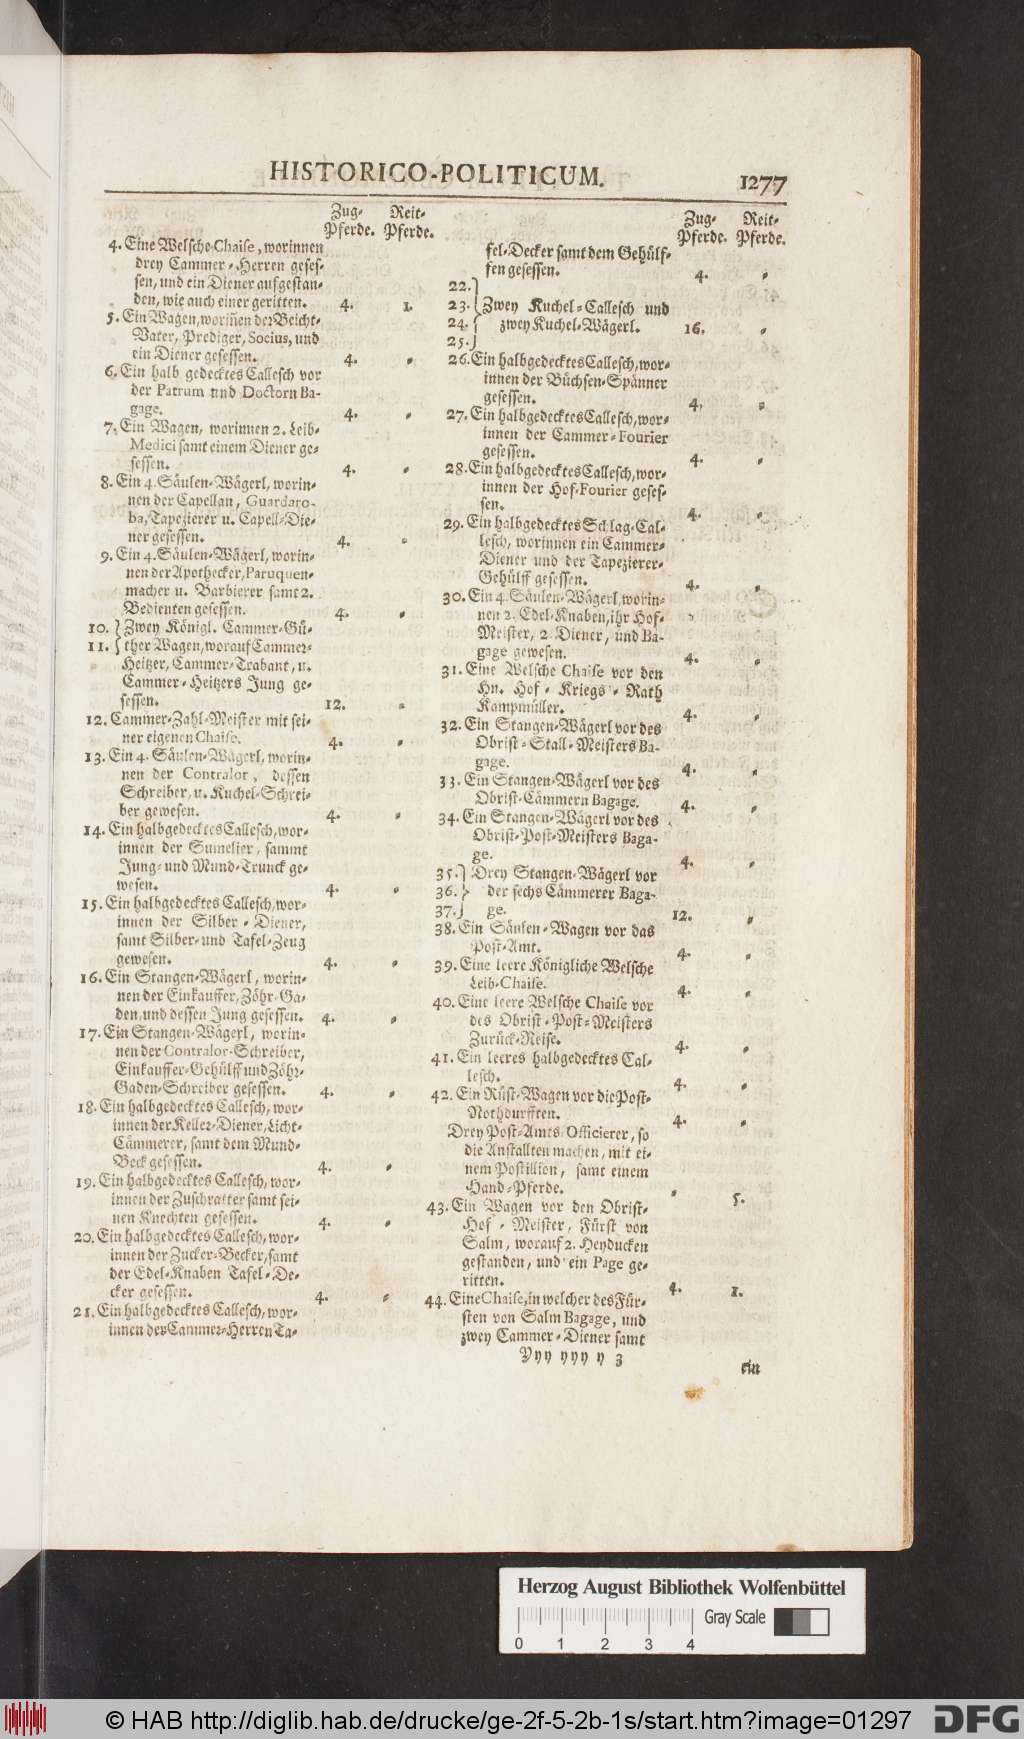 HISTORICO-POLITICUM. 1277
Zug- Reit-
Pferde. Pferde.
4. Eine Welsche Chaise, worinnen
drey Cammer-Herren geses-
sen, und ein Diener aufgestan-
den, wie auch einer geritten. 4. 1.
5. Ein Wagen, woriñen der Beicht-
Vater, Prediger, Socius, und
ein Diener gesessen. 4. -
6. Ein halb gedecktes Callesch vor
der Patrum und Doctorn Ba-
gage. 4. -
7. Ein Wagen, worinnen 2. Leib-
Medici samt einem Diener ge-
sessen. 4. -
8. Ein 4. Säulen-Wägerl, worin-
nen der Capellan, Guardaro-
ba, Tapezierer u. Capell-Die-
ner gesessen. 4. -
9. Ein 4. Säulen-Wägerl, worin-
nen der Apothecker, Paruquen-
macher u. Barbierer samt 2.
Bedienten gesessen. 4. -
10. } Zwey Königl. Cammer-Gü-
11. { ther Wagen, worauf Cammer-
Heitzer, Cammer-Trabant, u.
Cammer-Heitzers Jung ge-
sessen. 12. -
12. Cammer-Zahl-Meister mit sei-
ner eigenen Chaise. 4. -
13. Ein 4. Säulen-Wägerl, worin-
nen der Contralor, dessen
Schreiber, u. Kuchel-Schrei-
ber gewesen. 4. -
14. Ein halbgedecktes Callesch, wor-
innen der Sumelier, sammt
Jung- und Mund-Trunck ge-
wesen. 4. -
15. Ein halbgedecktes Callesch, wor-
innen der Silber-Diener,
samt Silber- und Tafel-Zeug
gewesen. 4. -
16. Ein Stangen-Wägerl, worin-
nen der Einkauffer, Zöhr-Ga-
den, und dessen Jung gesessen. 4. -
17. Ein Stangen-Wägerl, worin-
nen der Contralor-Schreiber,
Einkauffer-Gehülff und Zöhr-
Gaden-Schreiber gesessen. 4. -
18. Ein halbgedecktes Callesch, wor-
innen der Keller-Diener, Licht-
Cämmerer, samt dem Mund-
Beck gesessen. 4. -
19. Ein halbgedecktes Callesch, wor-
innen der Zuschratter samt sei-
nen Knechten gesessen. 4. -
20. Ein halbgedecktes Callesch, wor-
innen der Zucker-Becker, samt
der Edel-Knaben Tafel-De-
cker gesessen. 4. -
21. Ein halbgedecktes Callesch, wor-
innen der Cammer-Herren Ta-
Zug- Reit-
Pferde. Pferde.
fel-Decker samt dem Gehülf-
fen gesessen. 4. -
22. }
23. { Zwey Kuchel-Callesch und
24. { zwey Kuchel-Wägerl. 16. -
25. }
26. Ein halbgedecktes Callesch, wor-
innen der Büchsen-Spänner
gesessen. 4. -
27. Ein halbgedecktes Callesch, wor-
innen der Cammer-Fourier
gesessen. 4. -
28. Ein halbgedecktes Callesch, wor-
innen der Hof-Fourier geses-
sen. 4. -
29. Ein halbgedecktes Schlag-Cal-
lesch, worinnen ein Cammer-
Diener und der Tapezierer-
Gehülff gesessen. 4. -
30. Ein 4. Säulen-Wägerl, worin-
nen 2. Edel-Knaben, ihr Hof-
Meister, 2 Diener, und Ba-
gage gewesen. 4. -
31. Eine Welsche Chaise vor den
Hn. Hof-Kriegs-Rath
Kampmüller. 4. -
32. Ein Stangen-Wägerl vor des
Obrist-Stall-Meisters Ba-
gage. 4. -
33. Ein Stangen-Wägerl vor des
Obrist-Cämmern Bagage. 4. -
34. Ein Stangen-Wägerl vor des
Obrist-Post-Meisters Baga-
ge. 4. -
35. } Drey Stangen-Wägerl vor
36. } der sechs Cämmerer Baga-
37. } ge. 12. -
38. Ein Säulen-Wagen vor das
Post-Amt. 4. -
39. Eine leere Königliche Welsche
Leib-Chaise. 4. -
40. Eine leere Welsche Chaise vor
des Obrist-Post-Meisters
Zurück-Reise. 4. -
41. Ein leeres halbgedecktes Cal-
lesch. 4. -
42. Ein Rüst-Wagen vor die Post-
Nothdurfften. 4. -
Drey Post-Amts Officierer, so
die Anstallten machen, mit ei-
nem Postillion, samt einem
Hand-Pferde. - 5.
43. Ein Wagen vor den Obrist-
Hof-Meister, Fürst von
Salm, worauf 2. Heyducken
gestanden, und ein Page ge-
ritten. 4. 1.
44. Eine Chaise, in welcher des Für-
sten von Salm Bagage, und
zwey Cammer-Diener samt
Yyy yyy y 3 ein
Herzog August Bibliothek Wolfenbüttel
Gray Scale
0 1 2 3 4
© HAB http://diglib.hab.de/drucke/ge-2f-5-2b-1s/start.htm?image=01297
DFG